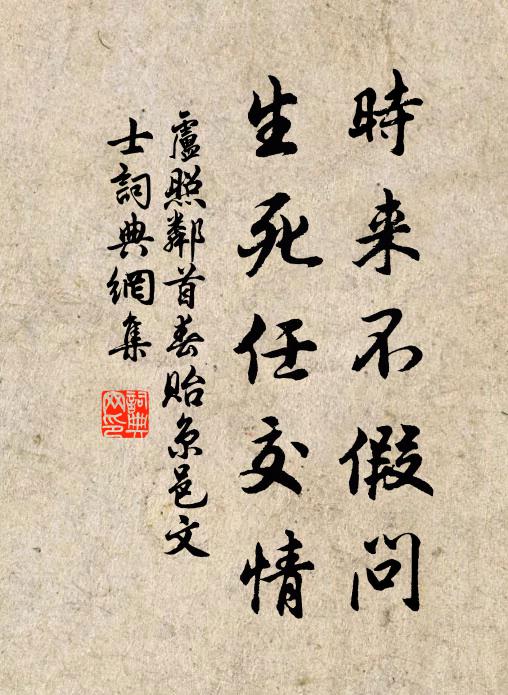 時来不假問
生死任交情
盧照鄰首春貽京邑文
士詞典網集
詞典
网印